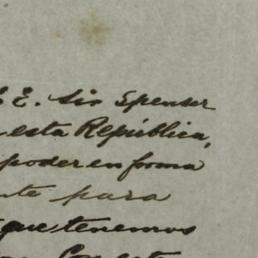 E. Sir Spenser
esta República,
poder en forma
nte para
que tenemos